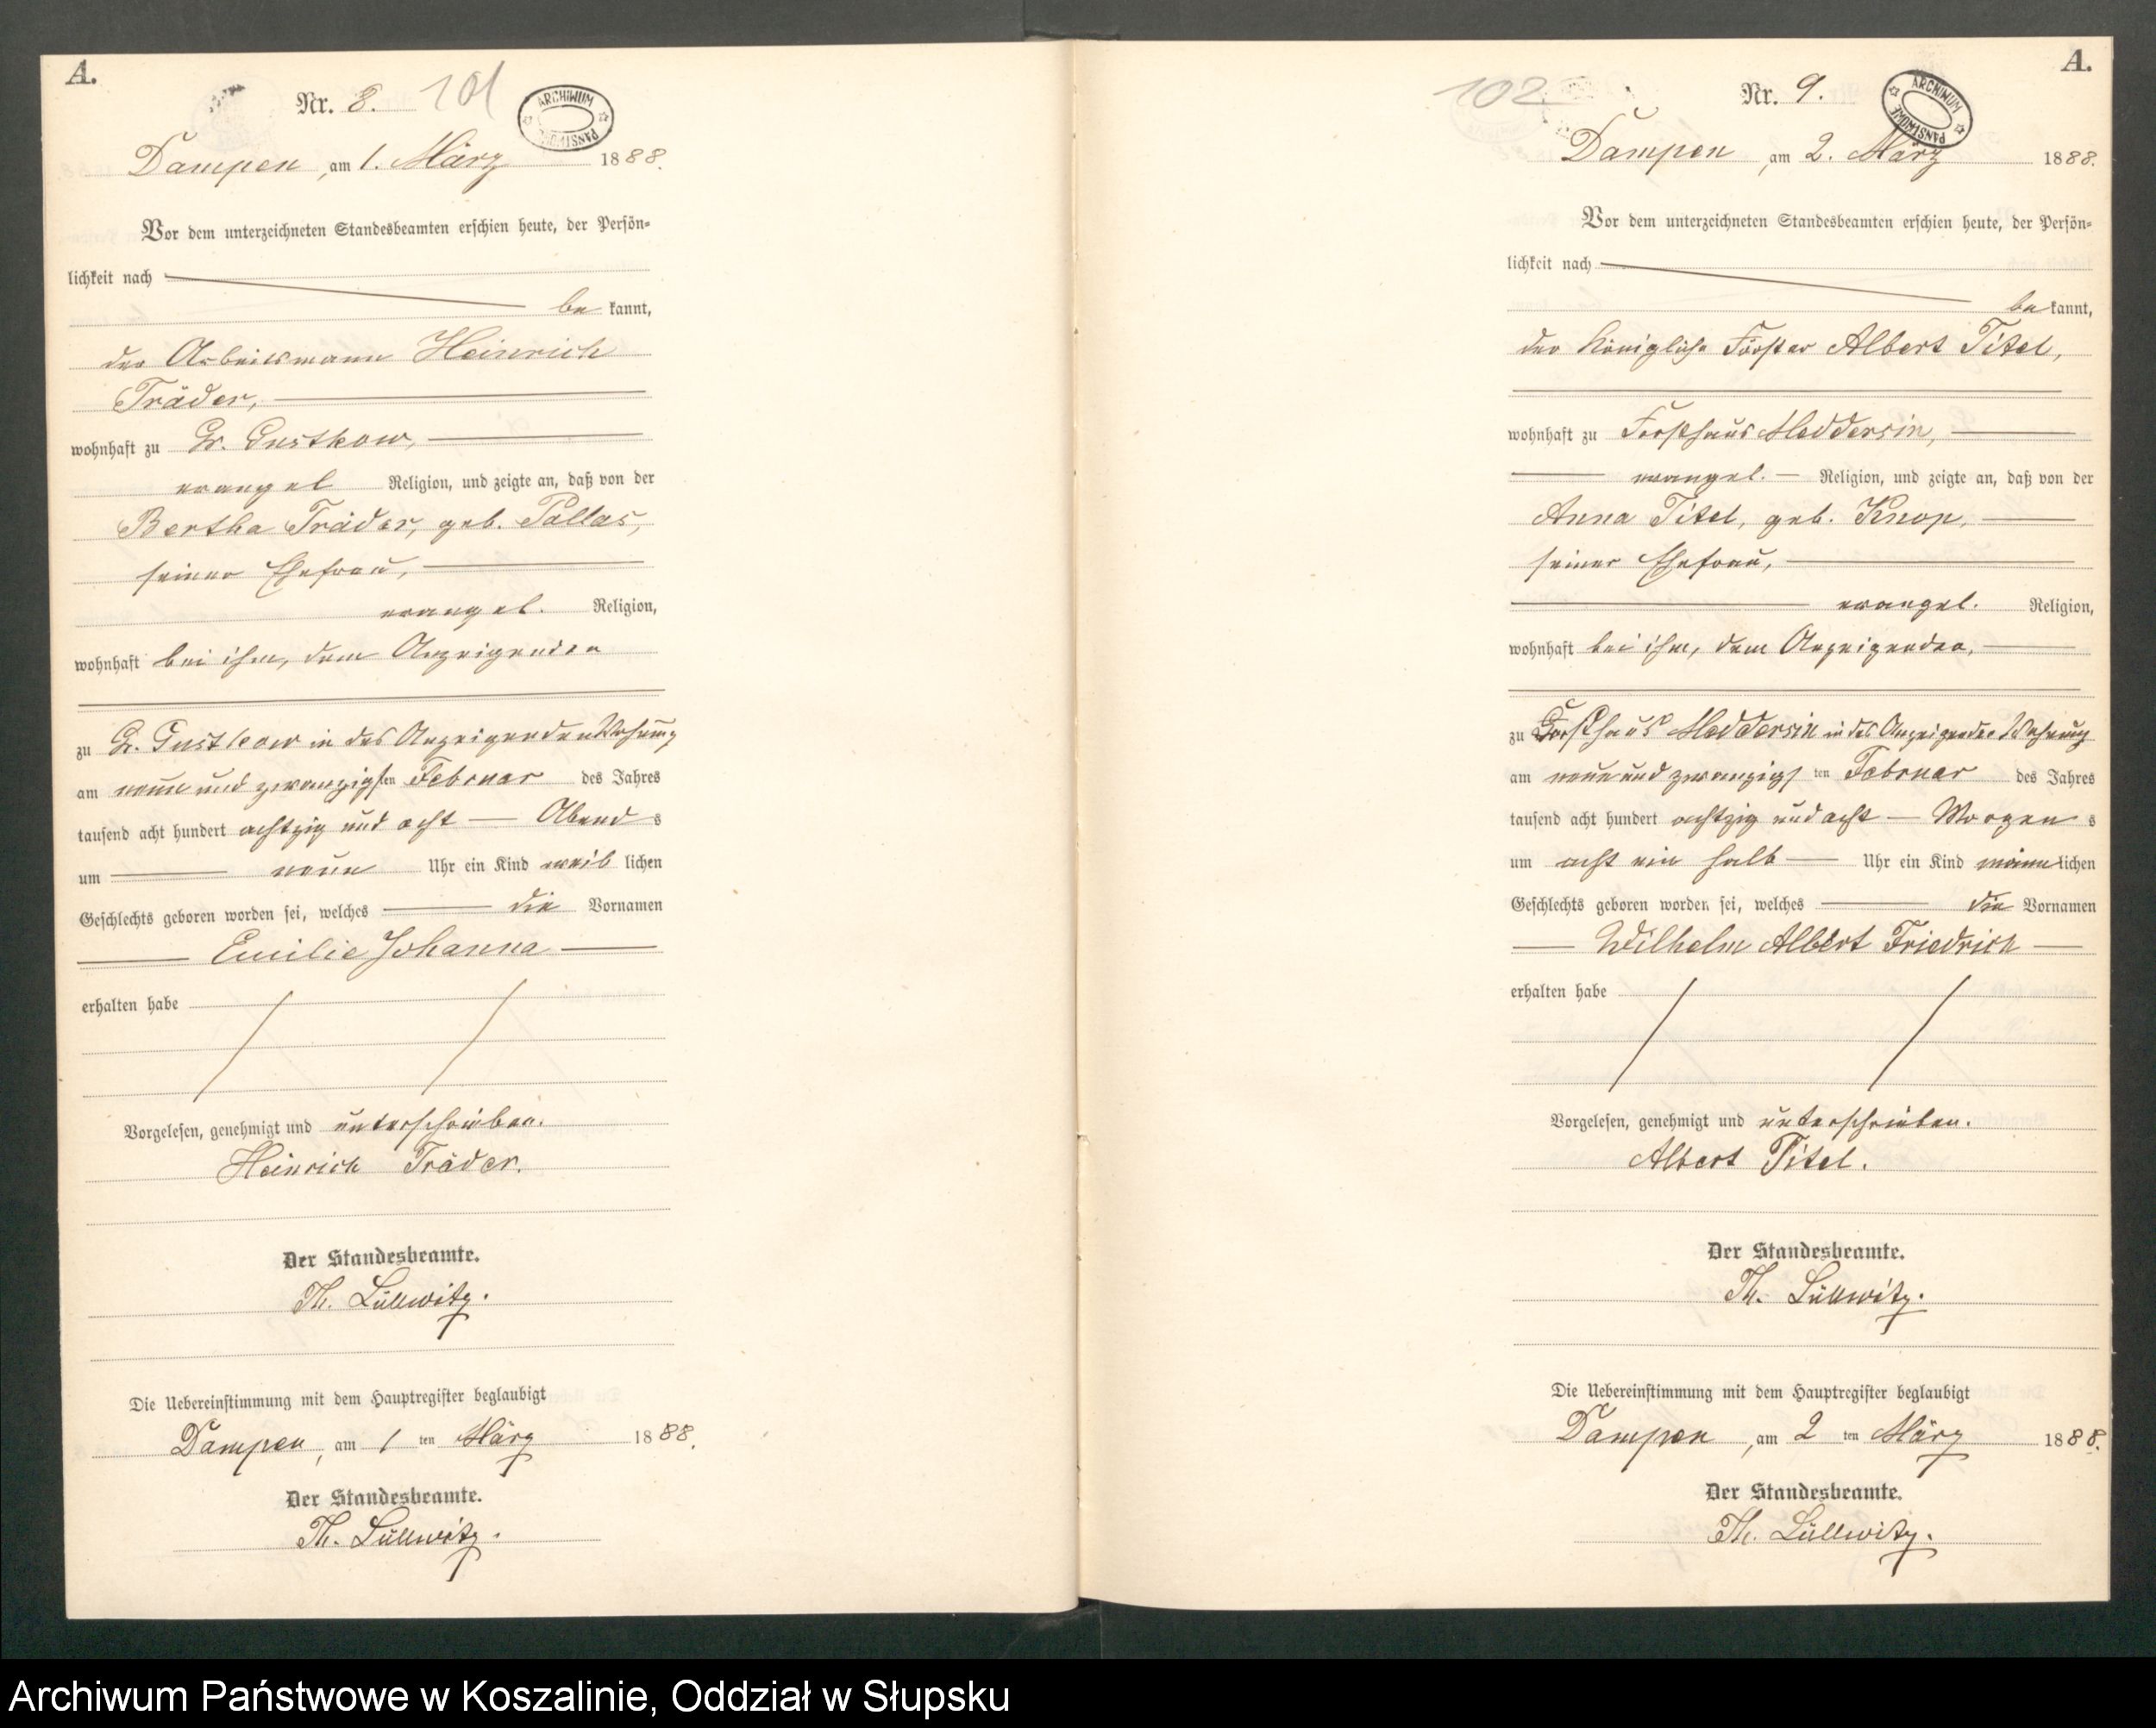 A.
Nr. 8. 101
ARCHIWUM PAŃSTWOWE
Dampen, am 1. März 1888.
Vor dem unterzeichneten Standesbeamten erschien heute, der Persön-
lichkeit nach
bekannt,
der Arbeitsmann Heinrich
Träder,
wohnhaft zu Gr. Gustkow,
evangel Religion, und zeigte an, daß von der
Bertha Träder, geb. Pallas,
seiner Ehefrau,
evangel. Religion,
wohnhaft bei ihm, dem Anzeigenden
zu Gr. Gustkow in des Anzeigenden Wohnung
am neun und zwanzigsten Februar des Jahres
tausend acht hundert achtzig und acht Abends
um neun Uhr ein Kind weiblichen
Geschlechts geboren worden sei, welches die Vornamen
Emilie Johanna
erhalten habe
Vorgelesen, genehmigt und unterschrieben.
Heinrich Träder.
Der Standesbeamte.
Th. Lüllwitz.
Die Uebereinstimmung mit dem Hauptregister beglaubigt
Dampen, am 1 ten März 1888.
Der Standesbeamte.
Th. Lüllwitz.
A.
102 Nr. 9.
ARCHIWUM PAŃSTWOWE
Dampen, am 2. März 1888.
Vor dem unterzeichneten Standesbeamten erschien heute, der Persön-
lichkeit nach
bekannt,
der Königliche Förster Albert Titel,
wohnhaft zu Forsthaus Meddersin,
evangel. Religion, und zeigte an, daß von der
Anna Titel, geb. Knop,
seiner Ehefrau,
evangel. Religion,
wohnhaft bei ihm, dem Anzeigenden,
zu Forsthaus Meddersin in des Anzeigenden Wohnung
am neun und zwanzigsten Februar des Jahres
tausend acht hundert achtzig und acht Morgens
um acht ein halb Uhr ein Kind männlichen
Geschlechts geboren worden sei, welches die Vornamen
Wilhelm Albert Friedrich
erhalten habe
Vorgelesen, genehmigt und unterschrieben.
Albert Titel.
Der Standesbeamte.
Th. Lüllwitz.
Die Uebereinstimmung mit dem Hauptregister beglaubigt
Dampen, am 2 ten März 1888.
Der Standesbeamte.
Th. Lüllwitz.
Archiwum Państwowe w Koszalinie, Oddział w Słupsku